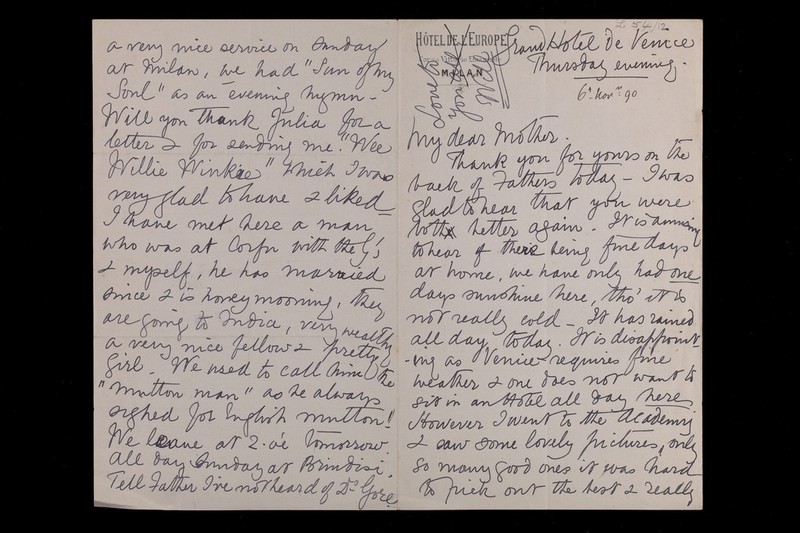 Hôtel de l'Europe
MILAN
Grand Hotel de Venice
Thursday evening.
6th Novr 90
My dear Mother.
Thank you for yours on the
back of Fathers today – I was
glad to hear that you were
both better again. It is amusing
to hear of there being fine days
at home, we have only had one
days sunshine here, tho' it is
not really cold – It has rained
all day today. It is disappoint
-ing as Venice requires fine
weather & one does not want to
sit in an Hotel all day here
However I went to the Academy
& saw some lovely pictures, only
so many good ones it was hard
to pick out the best & really
a very nice service on Sunday
at Milan, we had "Sun of my
Soul" as an evening hymn –
Will you thank Julia for a
letter & for sending me "Wee
Willie Winkie" which I was
very glad to have & liked –
I have met here a man
who was at Corfu with the G's
& myself, he has married
since & is honeymooning, they
are going to India, very wealthy
a very nice fellow & pretty
girl. We used to call him the
"mutton man" as he always
sighed for English mutton!!
We leave at 2. o'c tomorrow
all day Sunday at Brindisi.
Tell Father I've not heard of Dr Gore